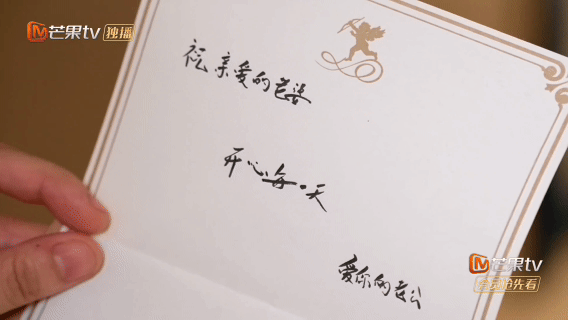 芒果tv 独播
祝亲爱的老婆
开心每一天
爱你的老公
芒果tv
会员抢先看